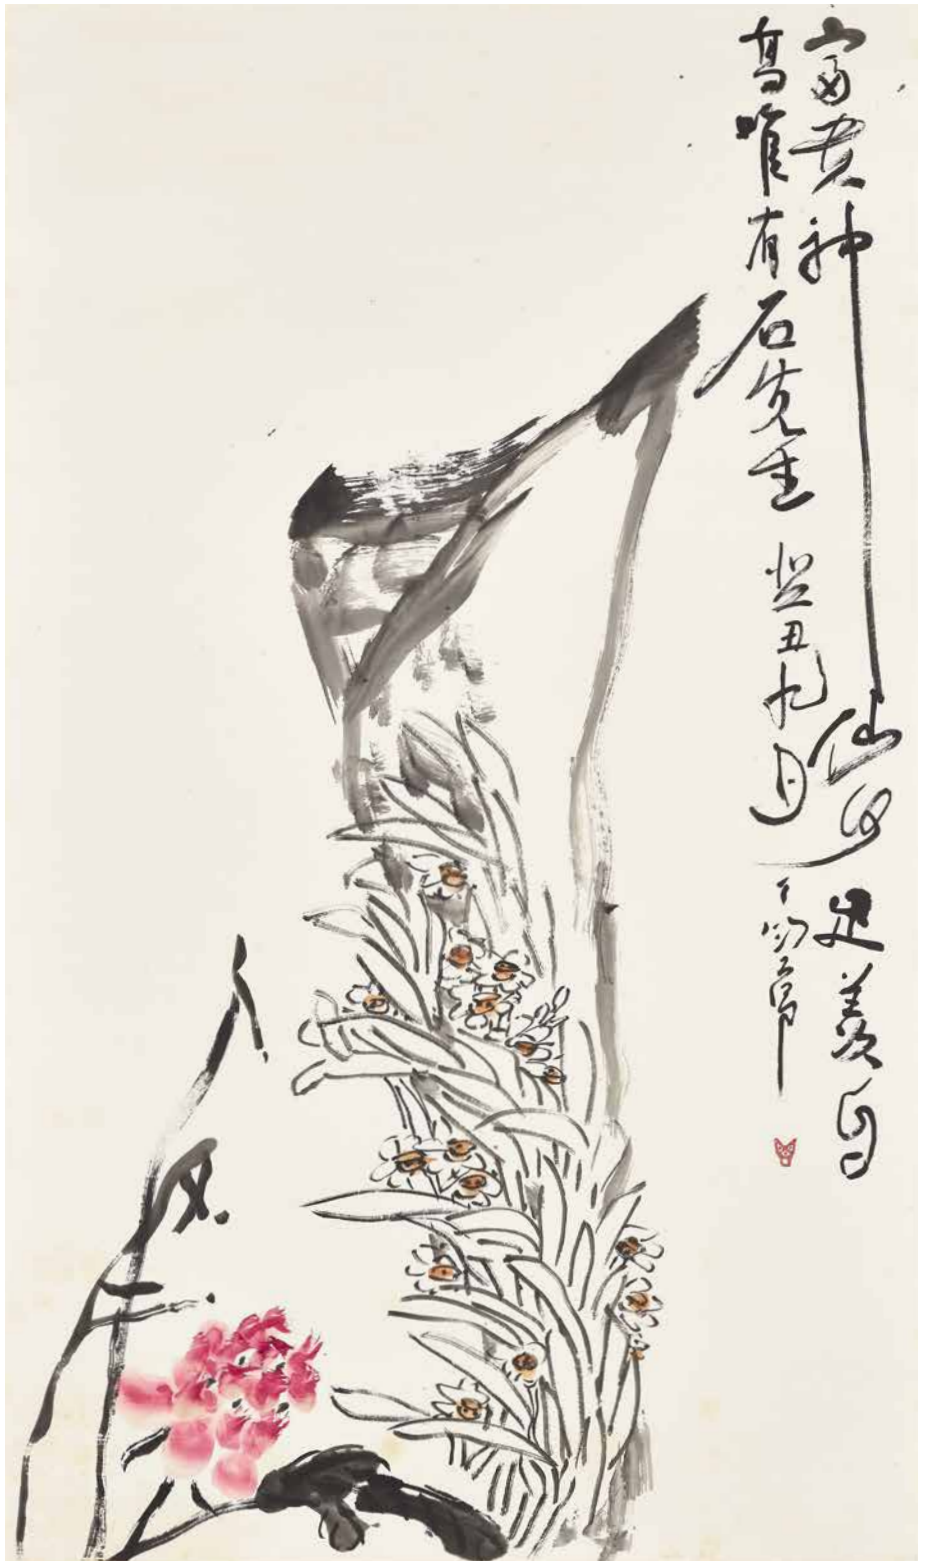 富貴神仙何足羨自
高唯有石先生 癸丑九月 丁衍庸